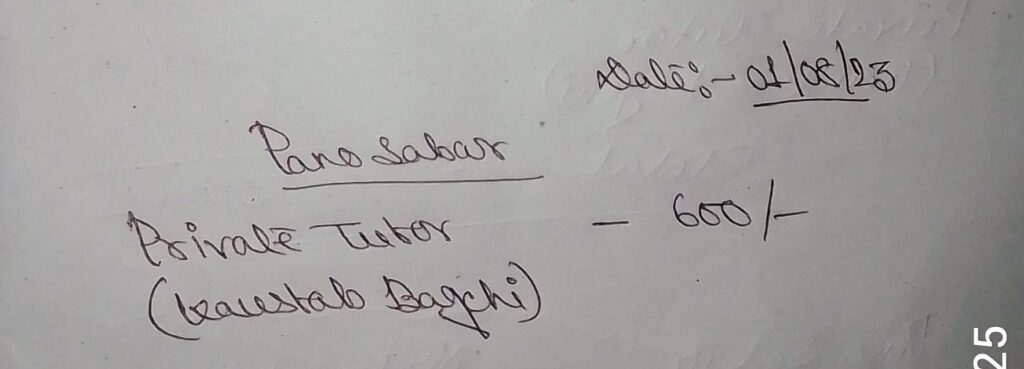 Date:- 01/08/23
Pano Sabar
Private Tutor - 600/-
(Kaustab Bagchi)
25